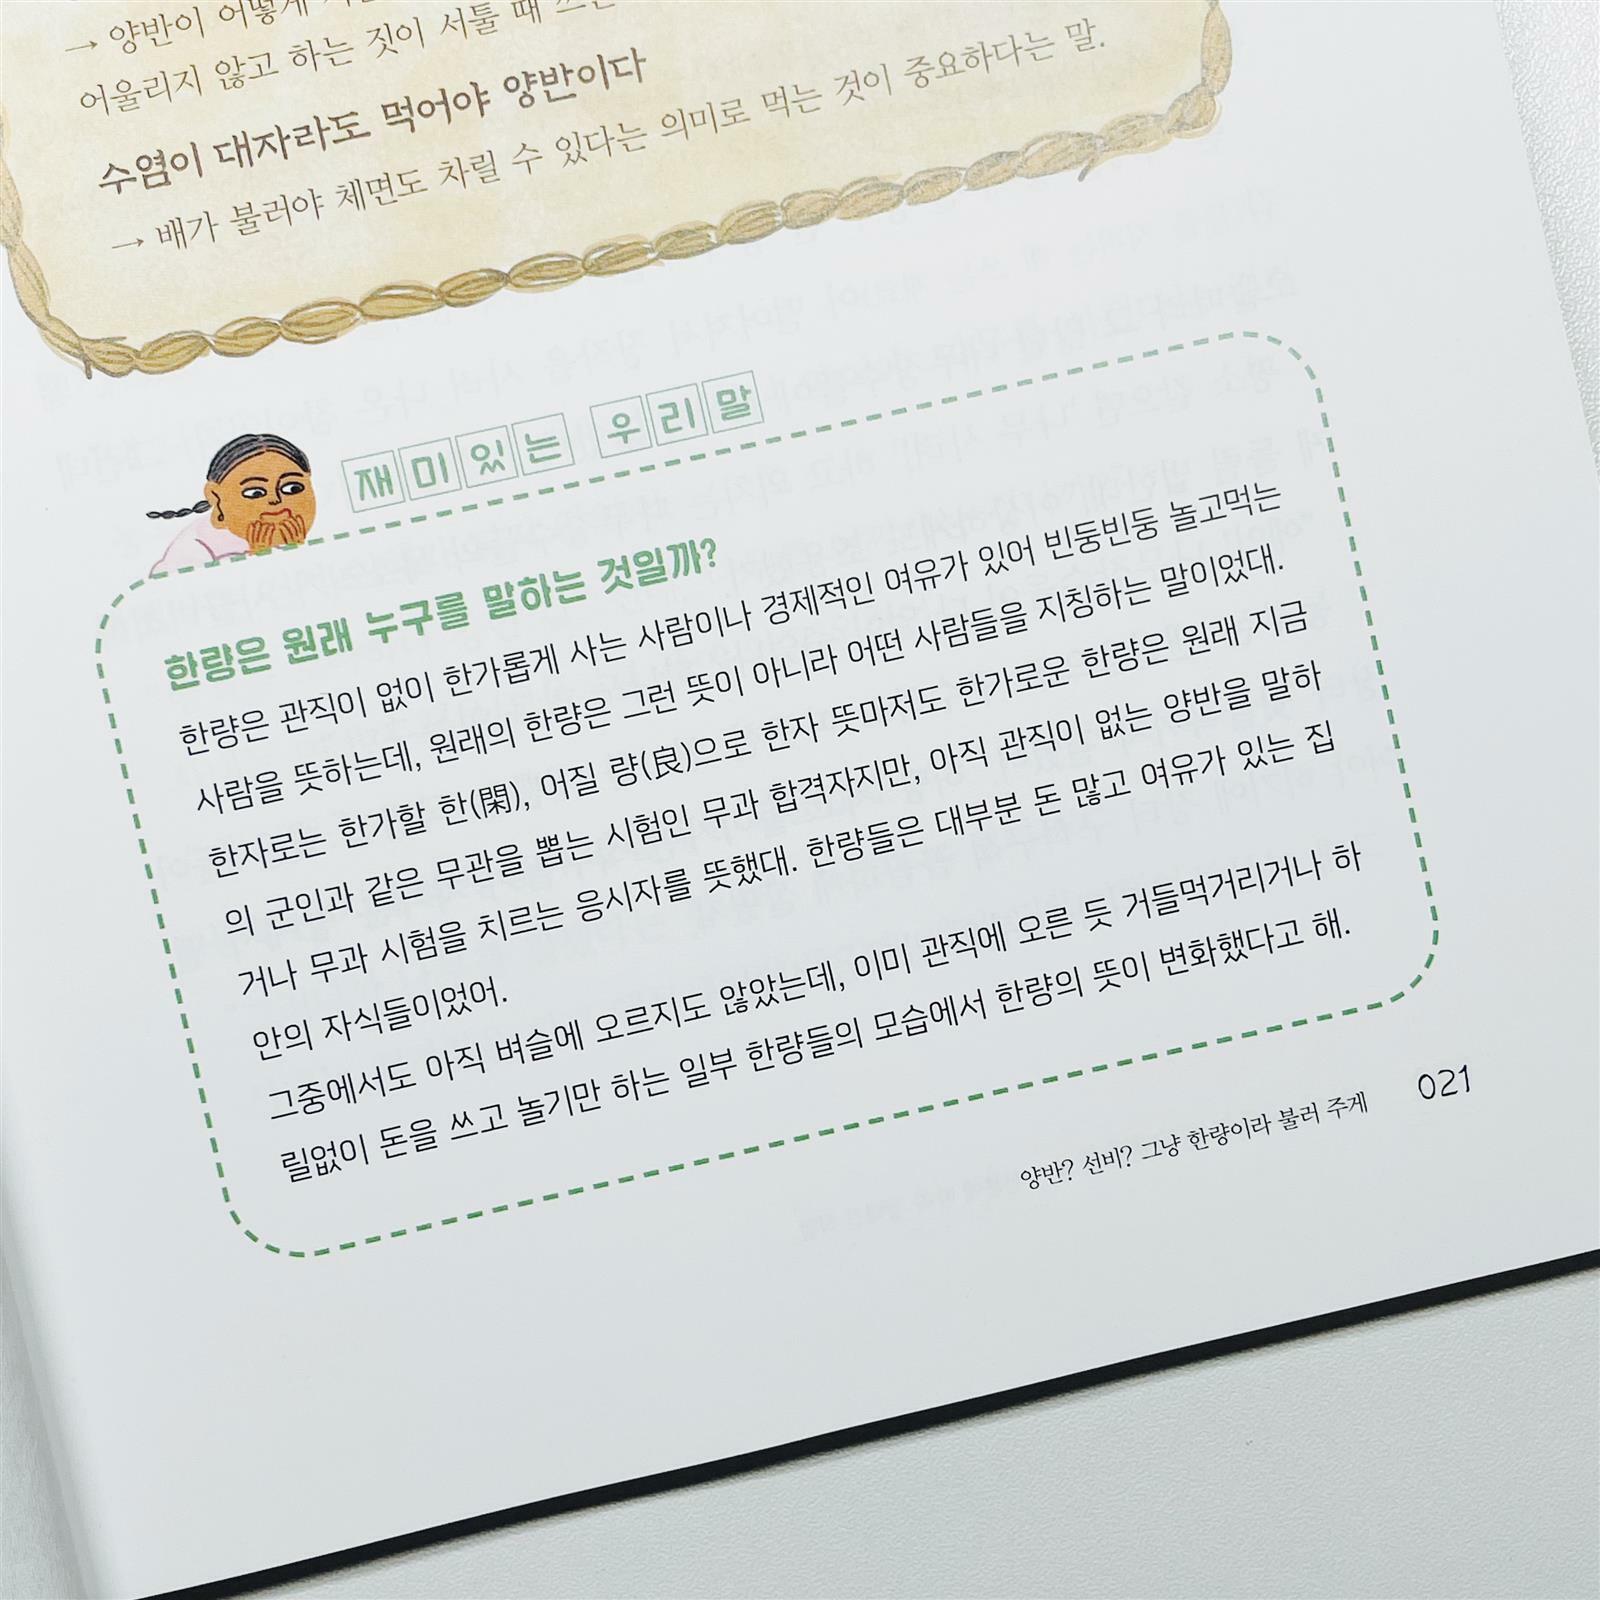 → 양반이 어떻게
어울리지 않고 하는 짓이 서툴 때 쓰는
수염이 대자라도 먹어야 양반이다
→ 배가 불러야 체면도 차릴 수 있다는 의미로 먹는 것이 중요하다는 말.
재미있는 우리말
한량은 원래 누구를 말하는 것일까?
한량은 관직이 없이 한가롭게 사는 사람이나 경제적인 여유가 있어 빈둥빈둥 놀고먹는
사람을 뜻하는데, 원래의 한량은 그런 뜻이 아니라 어떤 사람들을 지칭하는 말이었대.
한자로는 한가할 한(閑), 어질 량(良)으로 한자 뜻마저도 한가로운 한량은 원래 지금
의 군인과 같은 무관을 뽑는 시험인 무과 합격자지만, 아직 관직이 없는 양반을 말하
거나 무과 시험을 치르는 응시자를 뜻했대. 한량들은 대부분 돈 많고 여유가 있는 집
안의 자식들이었어.
그중에서도 아직 벼슬에 오르지도 않았는데, 이미 관직에 오른 듯 거들먹거리거나 하
릴없이 돈을 쓰고 놀기만 하는 일부 한량들의 모습에서 한량의 뜻이 변화했다고 해.
양반? 선비? 그냥 한량이라 불러 주게 021